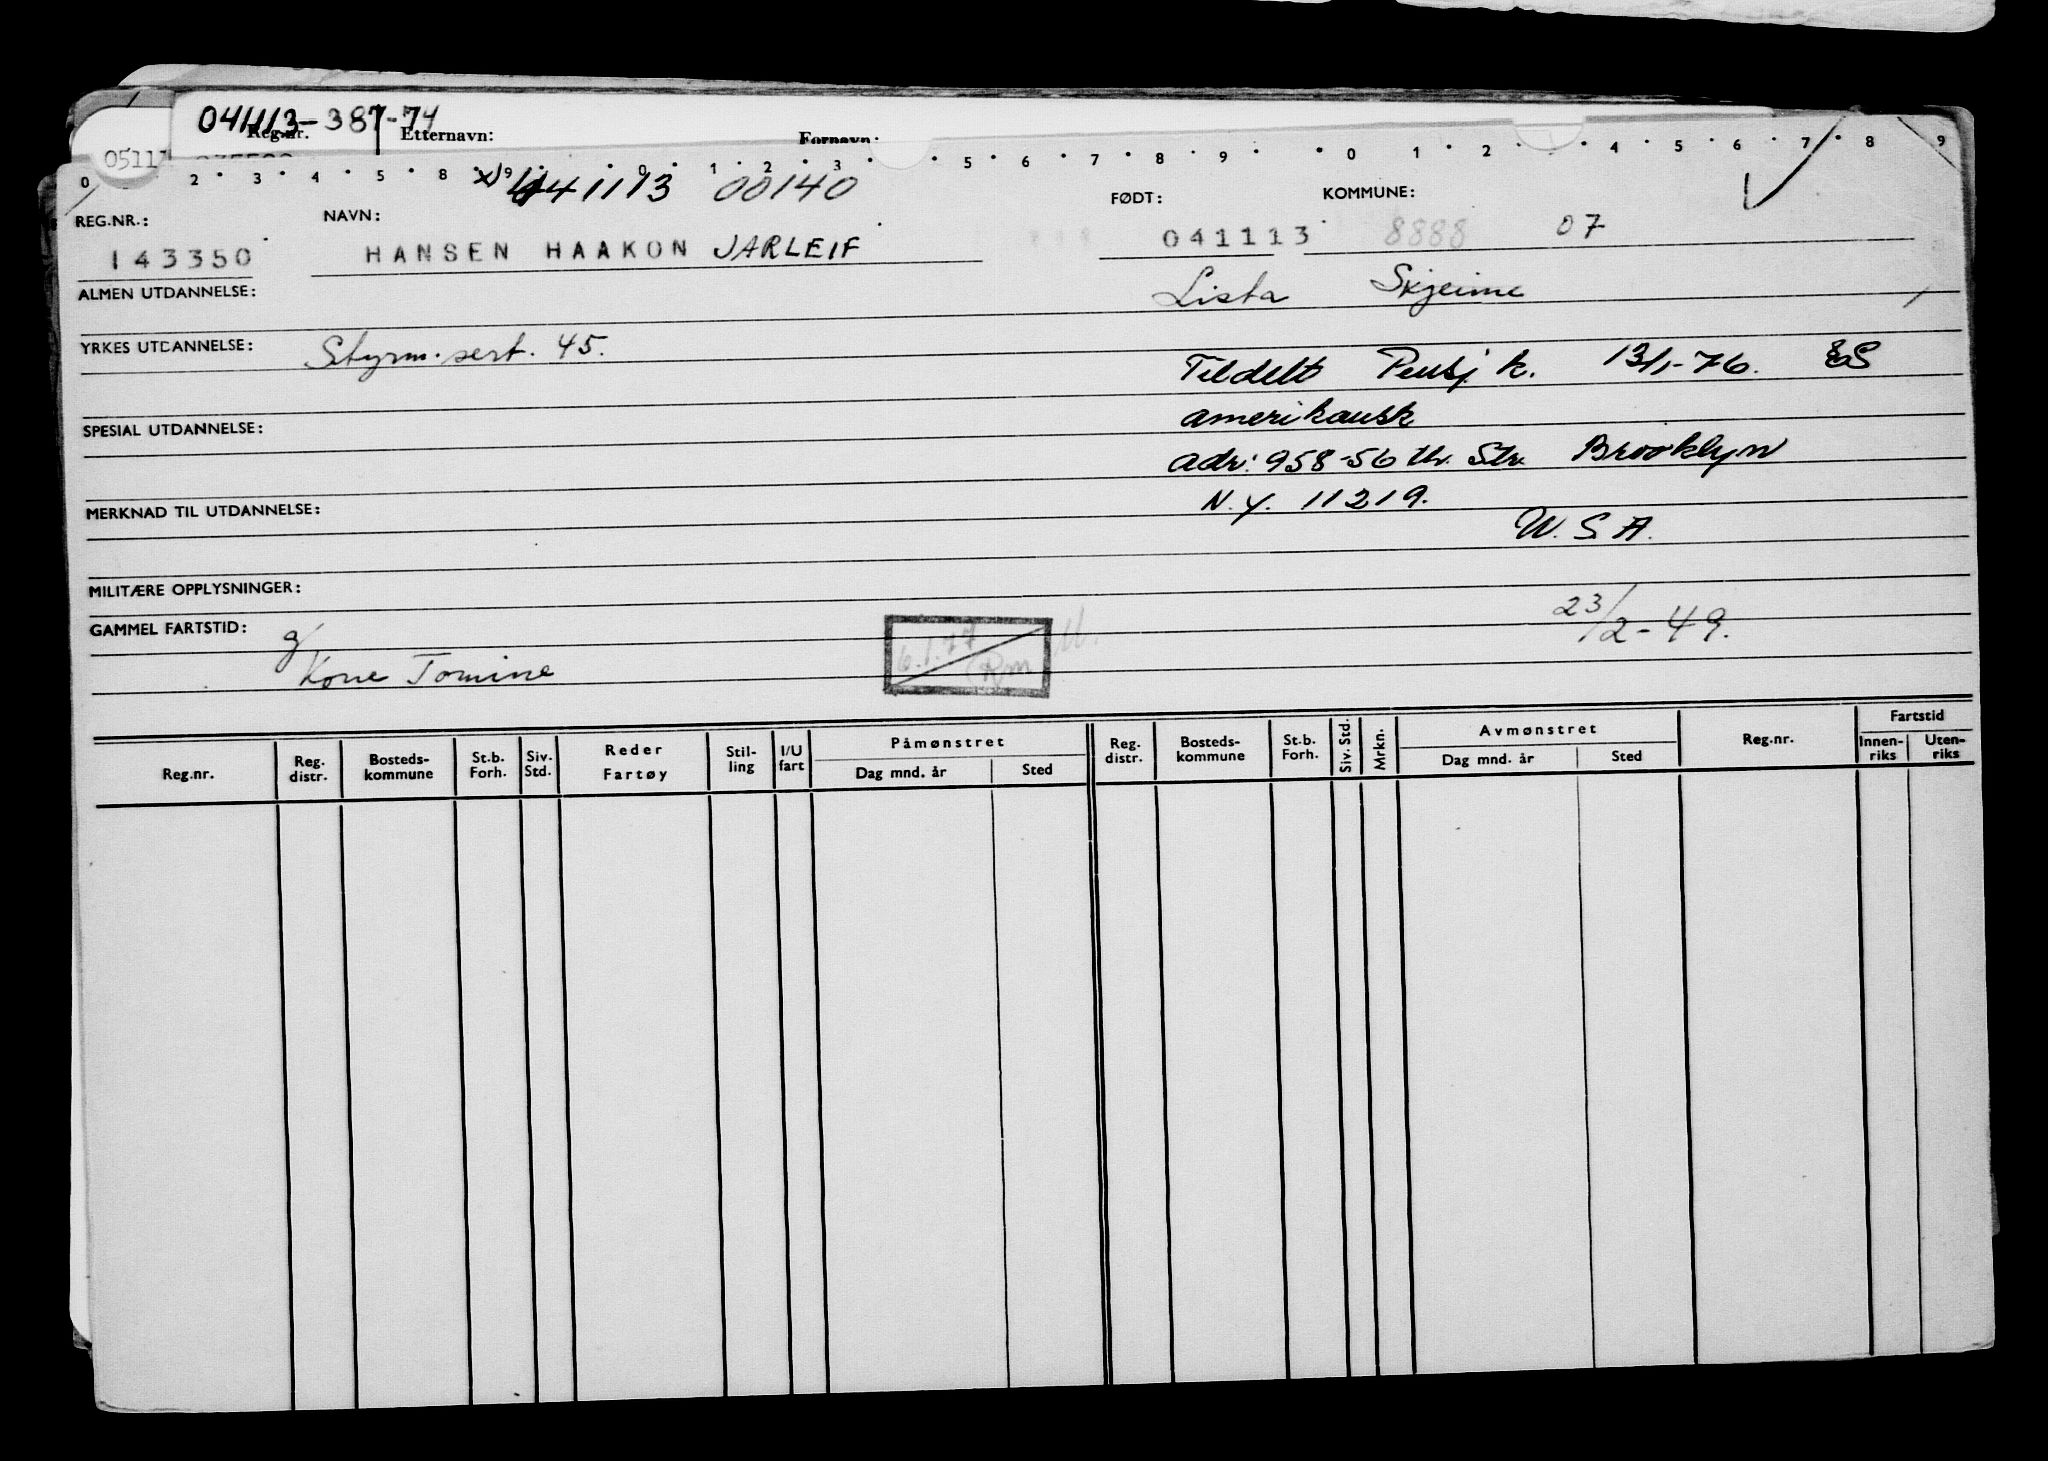 041113-387-74
Reg.nr. Etternavn: Fornavn:
0511
0 2 3 4 5 8 9 0 1 2 3 5 6 7 8 9 0 1 2 4 5 6 7 8 9
041113 00140
REG.NR.: NAVN: FØDT: KOMMUNE:
143350 HANSEN HAAKON JARLEIF 041113 8888 07
ALMEN UTDANNELSE: Lista Skjeime
YRKES UTDANNELSE: Styrm. sert. 45.
Tildelt Pensj k. 13/1-76. ES
amerikansk
SPESIAL UTDANNELSE:
Adr: 958-56 th. Str. Brooklyn
N.Y. 11219.
MERKNAD TIL UTDANNELSE:
U.S.A.
MILITÆRE OPPLYSNINGER:
GAMMEL FARTSTID: 23/2-49.
g/
Kone Tomine
6.1.77
Rm
Reg.nr. Reg. distr. Bosteds-kommune St.b. Forh. Siv. Std. Reder Fartøy Stil-ling I/U fart Påmønstret Dag mnd. år Sted Reg. distr. Bosteds-kommune St.b. Forh. Siv. Std. Mrkn. Avmønstret Dag mnd. år Sted Reg.nr. Fartstid Innen-riks Uten-riks